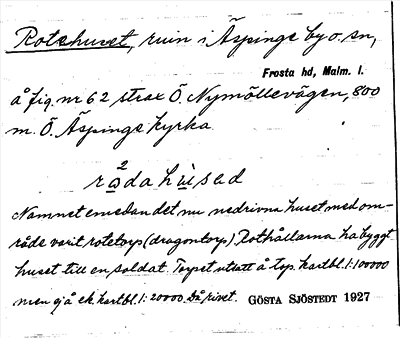 Rotehuset, ruin i Äspinge by o. sn,
Frosta hd, Malm. l.
å fig. nr 62 strax Ö. Nymöllevägen, 800
m. Ö. Äspinge kyrka
2
rådahùsad
Namnet emedan det nu nedrivna huset med om-
råde varit rotetorp (dragontorp). Rothållarna ha byggt
huset till en soldat. Torpet utsatt å top. kartbl. 1:100000
men ej å ek. kartbl. 1:20000. Då rivet. GÖSTA SJÖSTEDT 1927